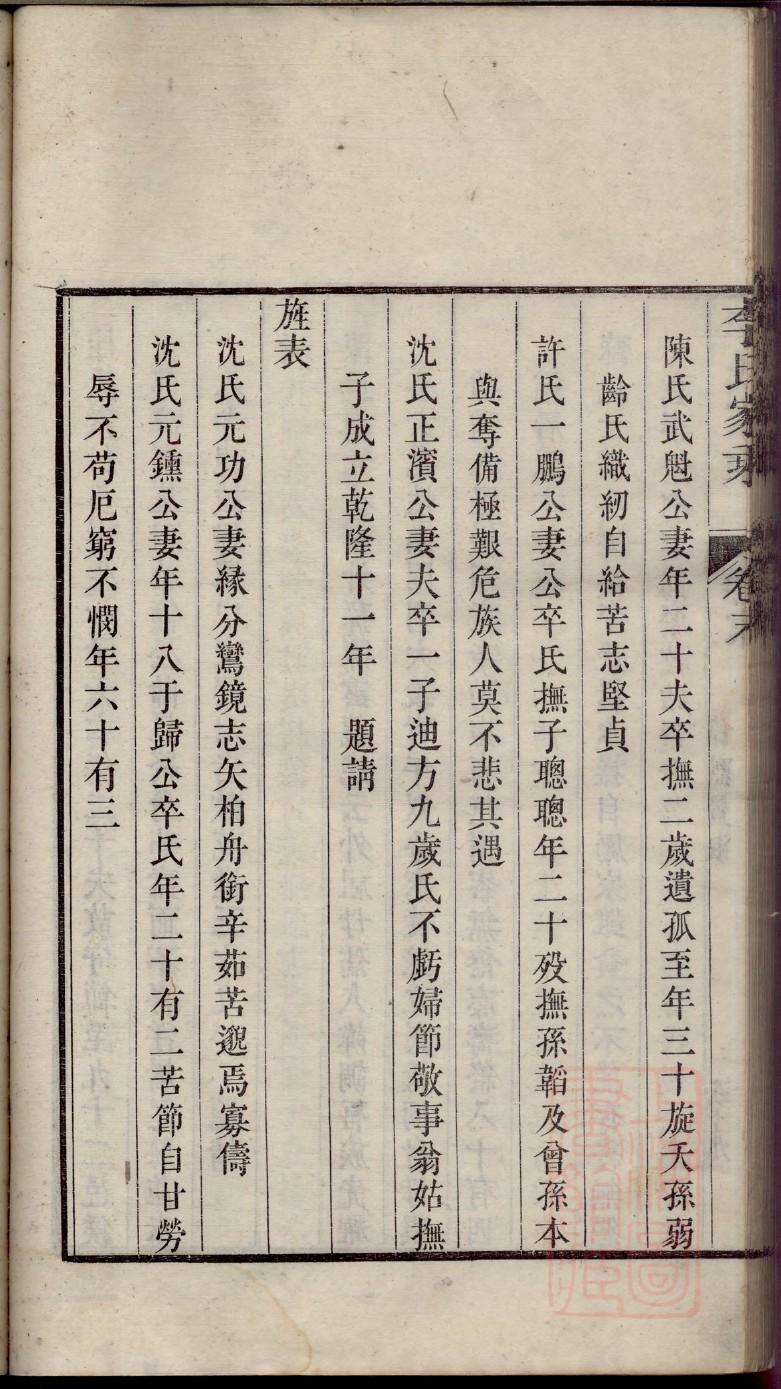 李氏家乘 卷末
陳氏武魁公妻年二十夫卒撫二歲遺孤至年三十旋夭孫弱
齡氏織紉自給苦志堅貞
許氏一鵬公妻公卒氏撫子聰聰年二十歿撫孫韜及曾孫本
與奪備極艱危族人莫不悲其遇
沈氏正濱公妻夫卒一子迪方九歲氏不虧婦節敬事翁姑撫
子成立乾隆十一年 題請
旌表
沈氏元功公妻緣分鸞鏡志矢柏舟銜辛茹苦邈焉寡儔
沈氏元鑂公妻年十八于歸公卒氏年二十有二苦節自甘勞
辱不苟厄窮不憫年六十有三